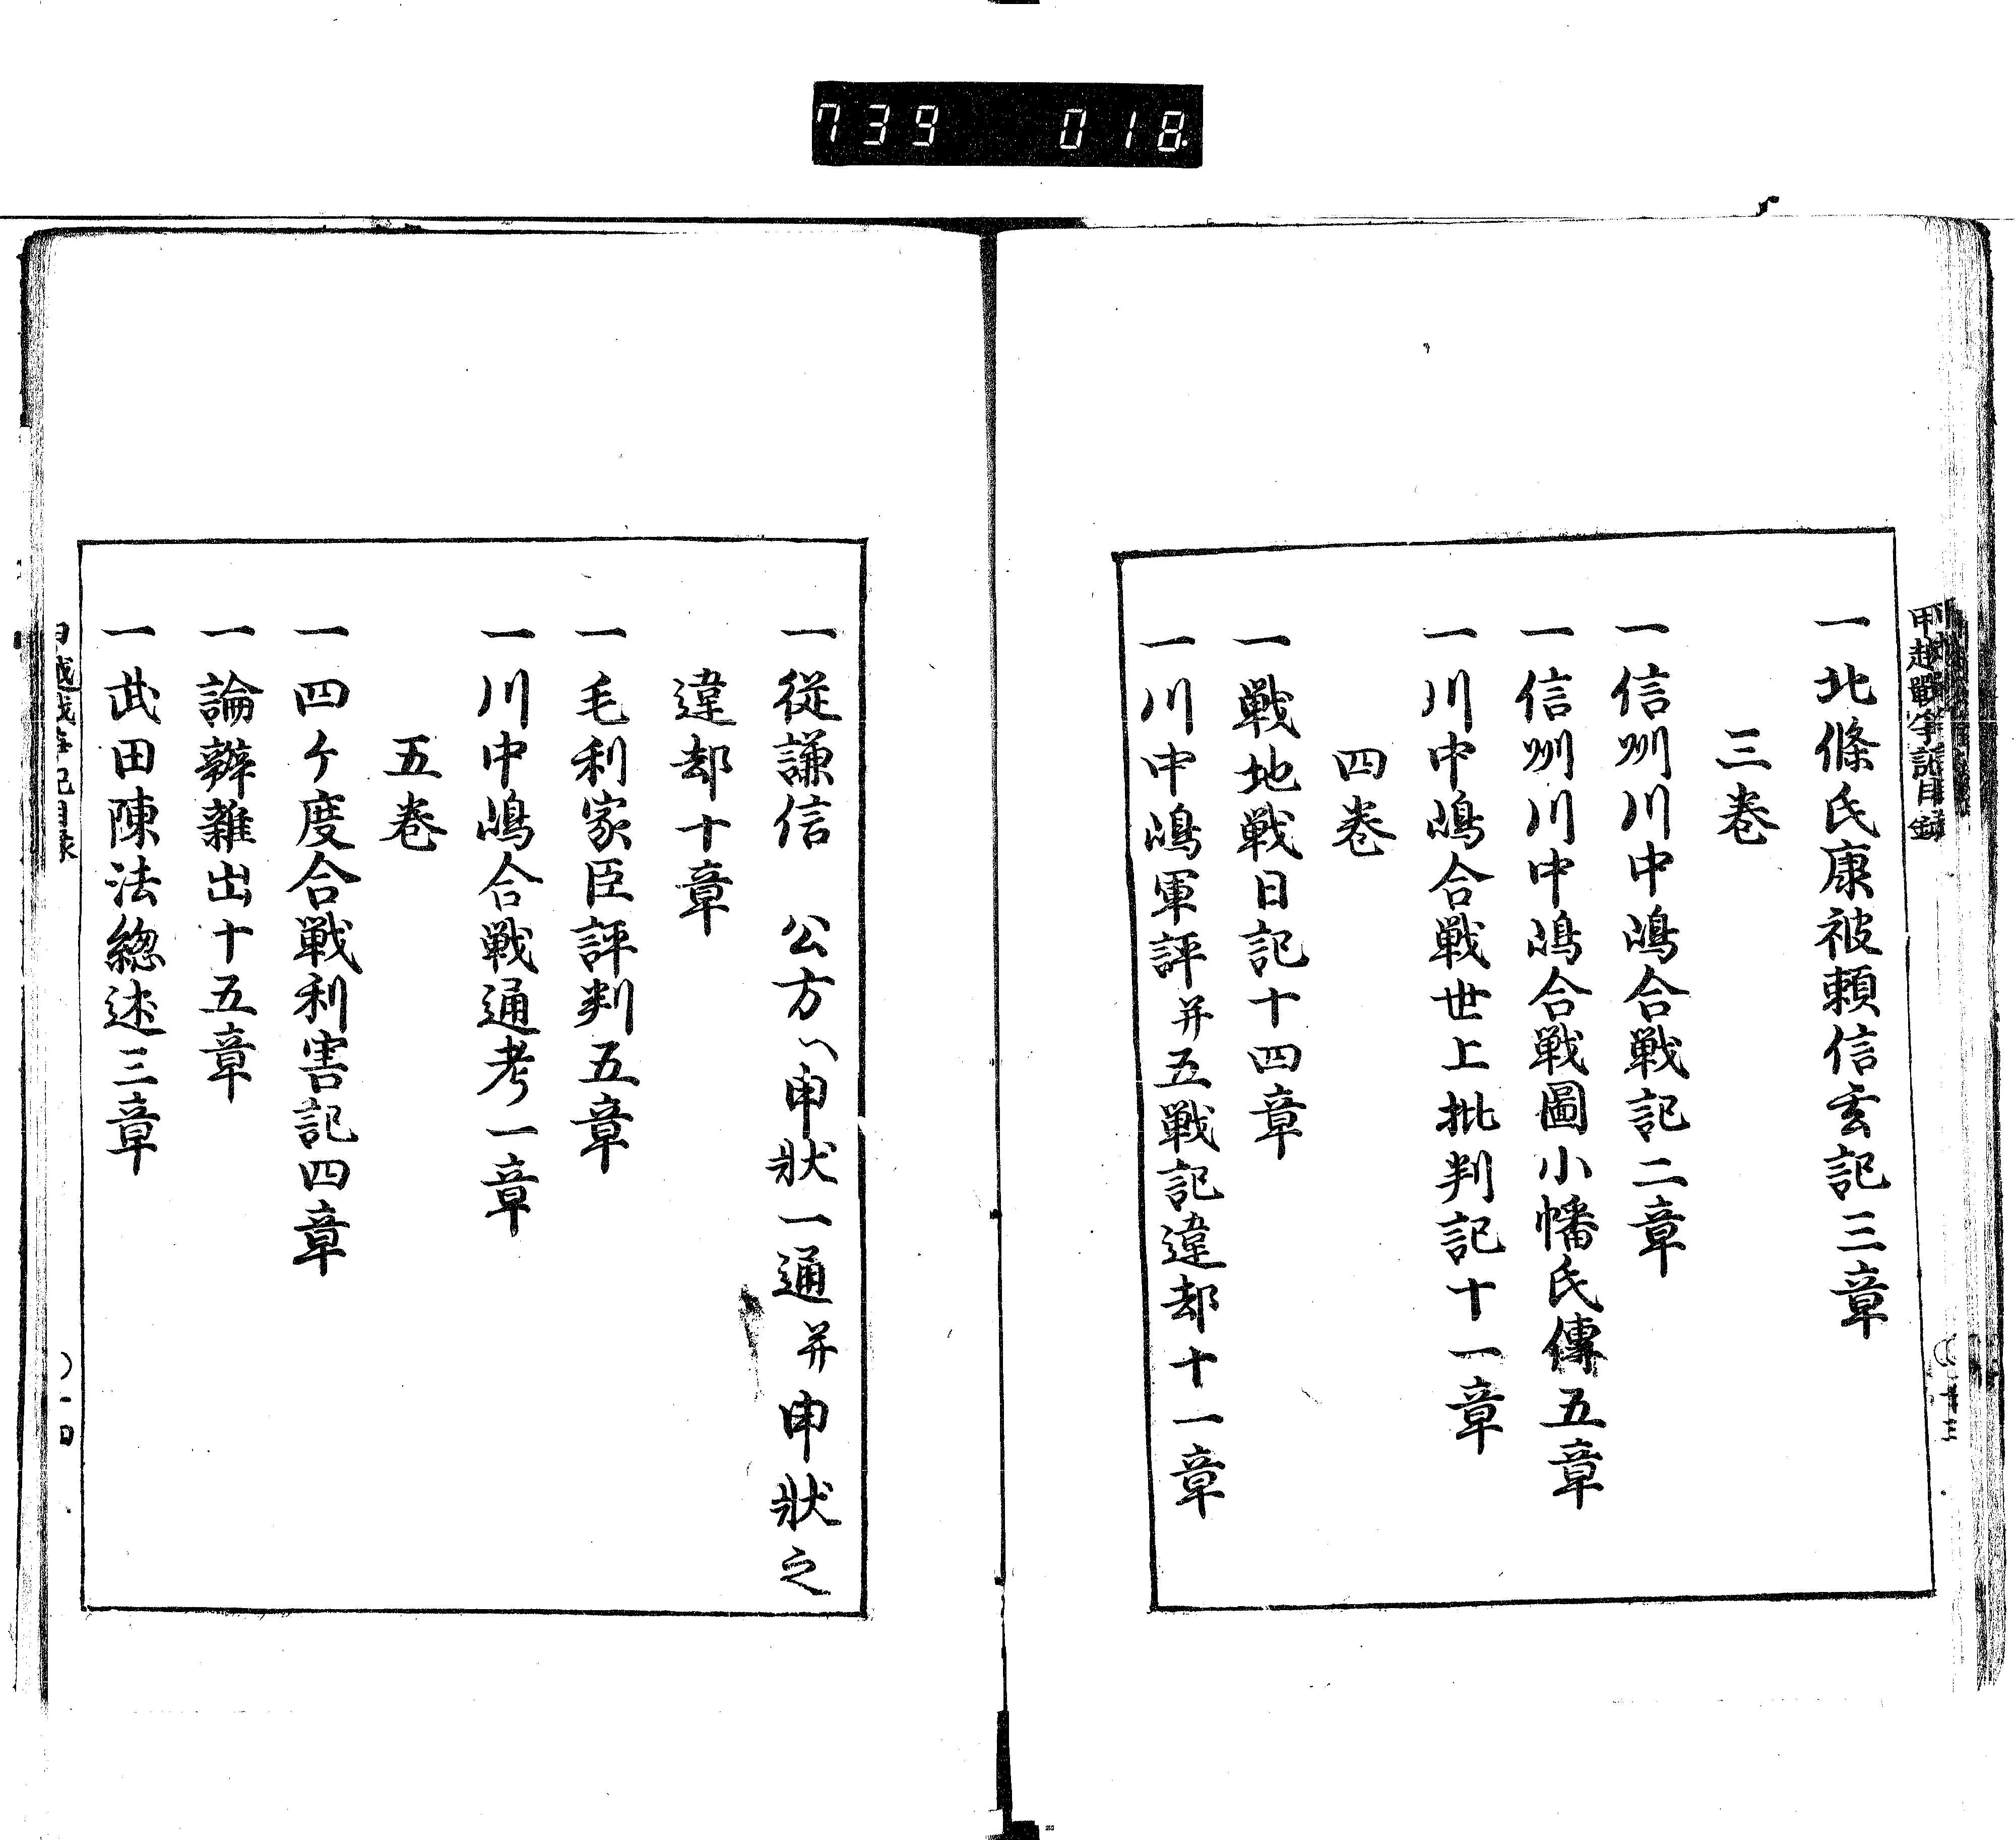 739 018
甲越戰爭記目録
一北條氏康被頼信玄記三章
三巻
一信州川中嶋合戦記二章
一信州川中嶋合戦圖小幡氏傳五章
一川中嶋合戦世上批判記十一章
四巻
一戦地戦日記十四章
一川中嶋軍評并五戦記違却十一章
一従謙信　公方へ申状一通并申状之
違却十章
一毛利家臣評判五章
一川中嶋合戦通考一章
五巻
一四ケ度合戦利害記四章
一論辨雜出十五章
一武田陳法總述三章